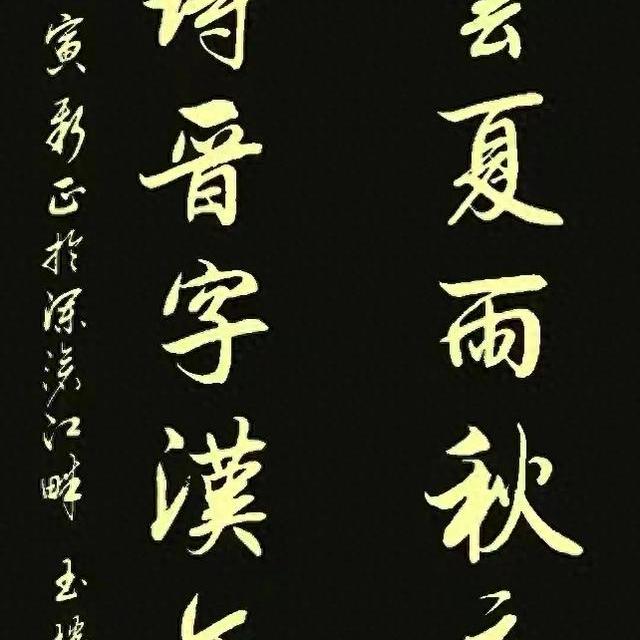 夏雨秋
詩晋字漢
寅新正於深江畔 玉